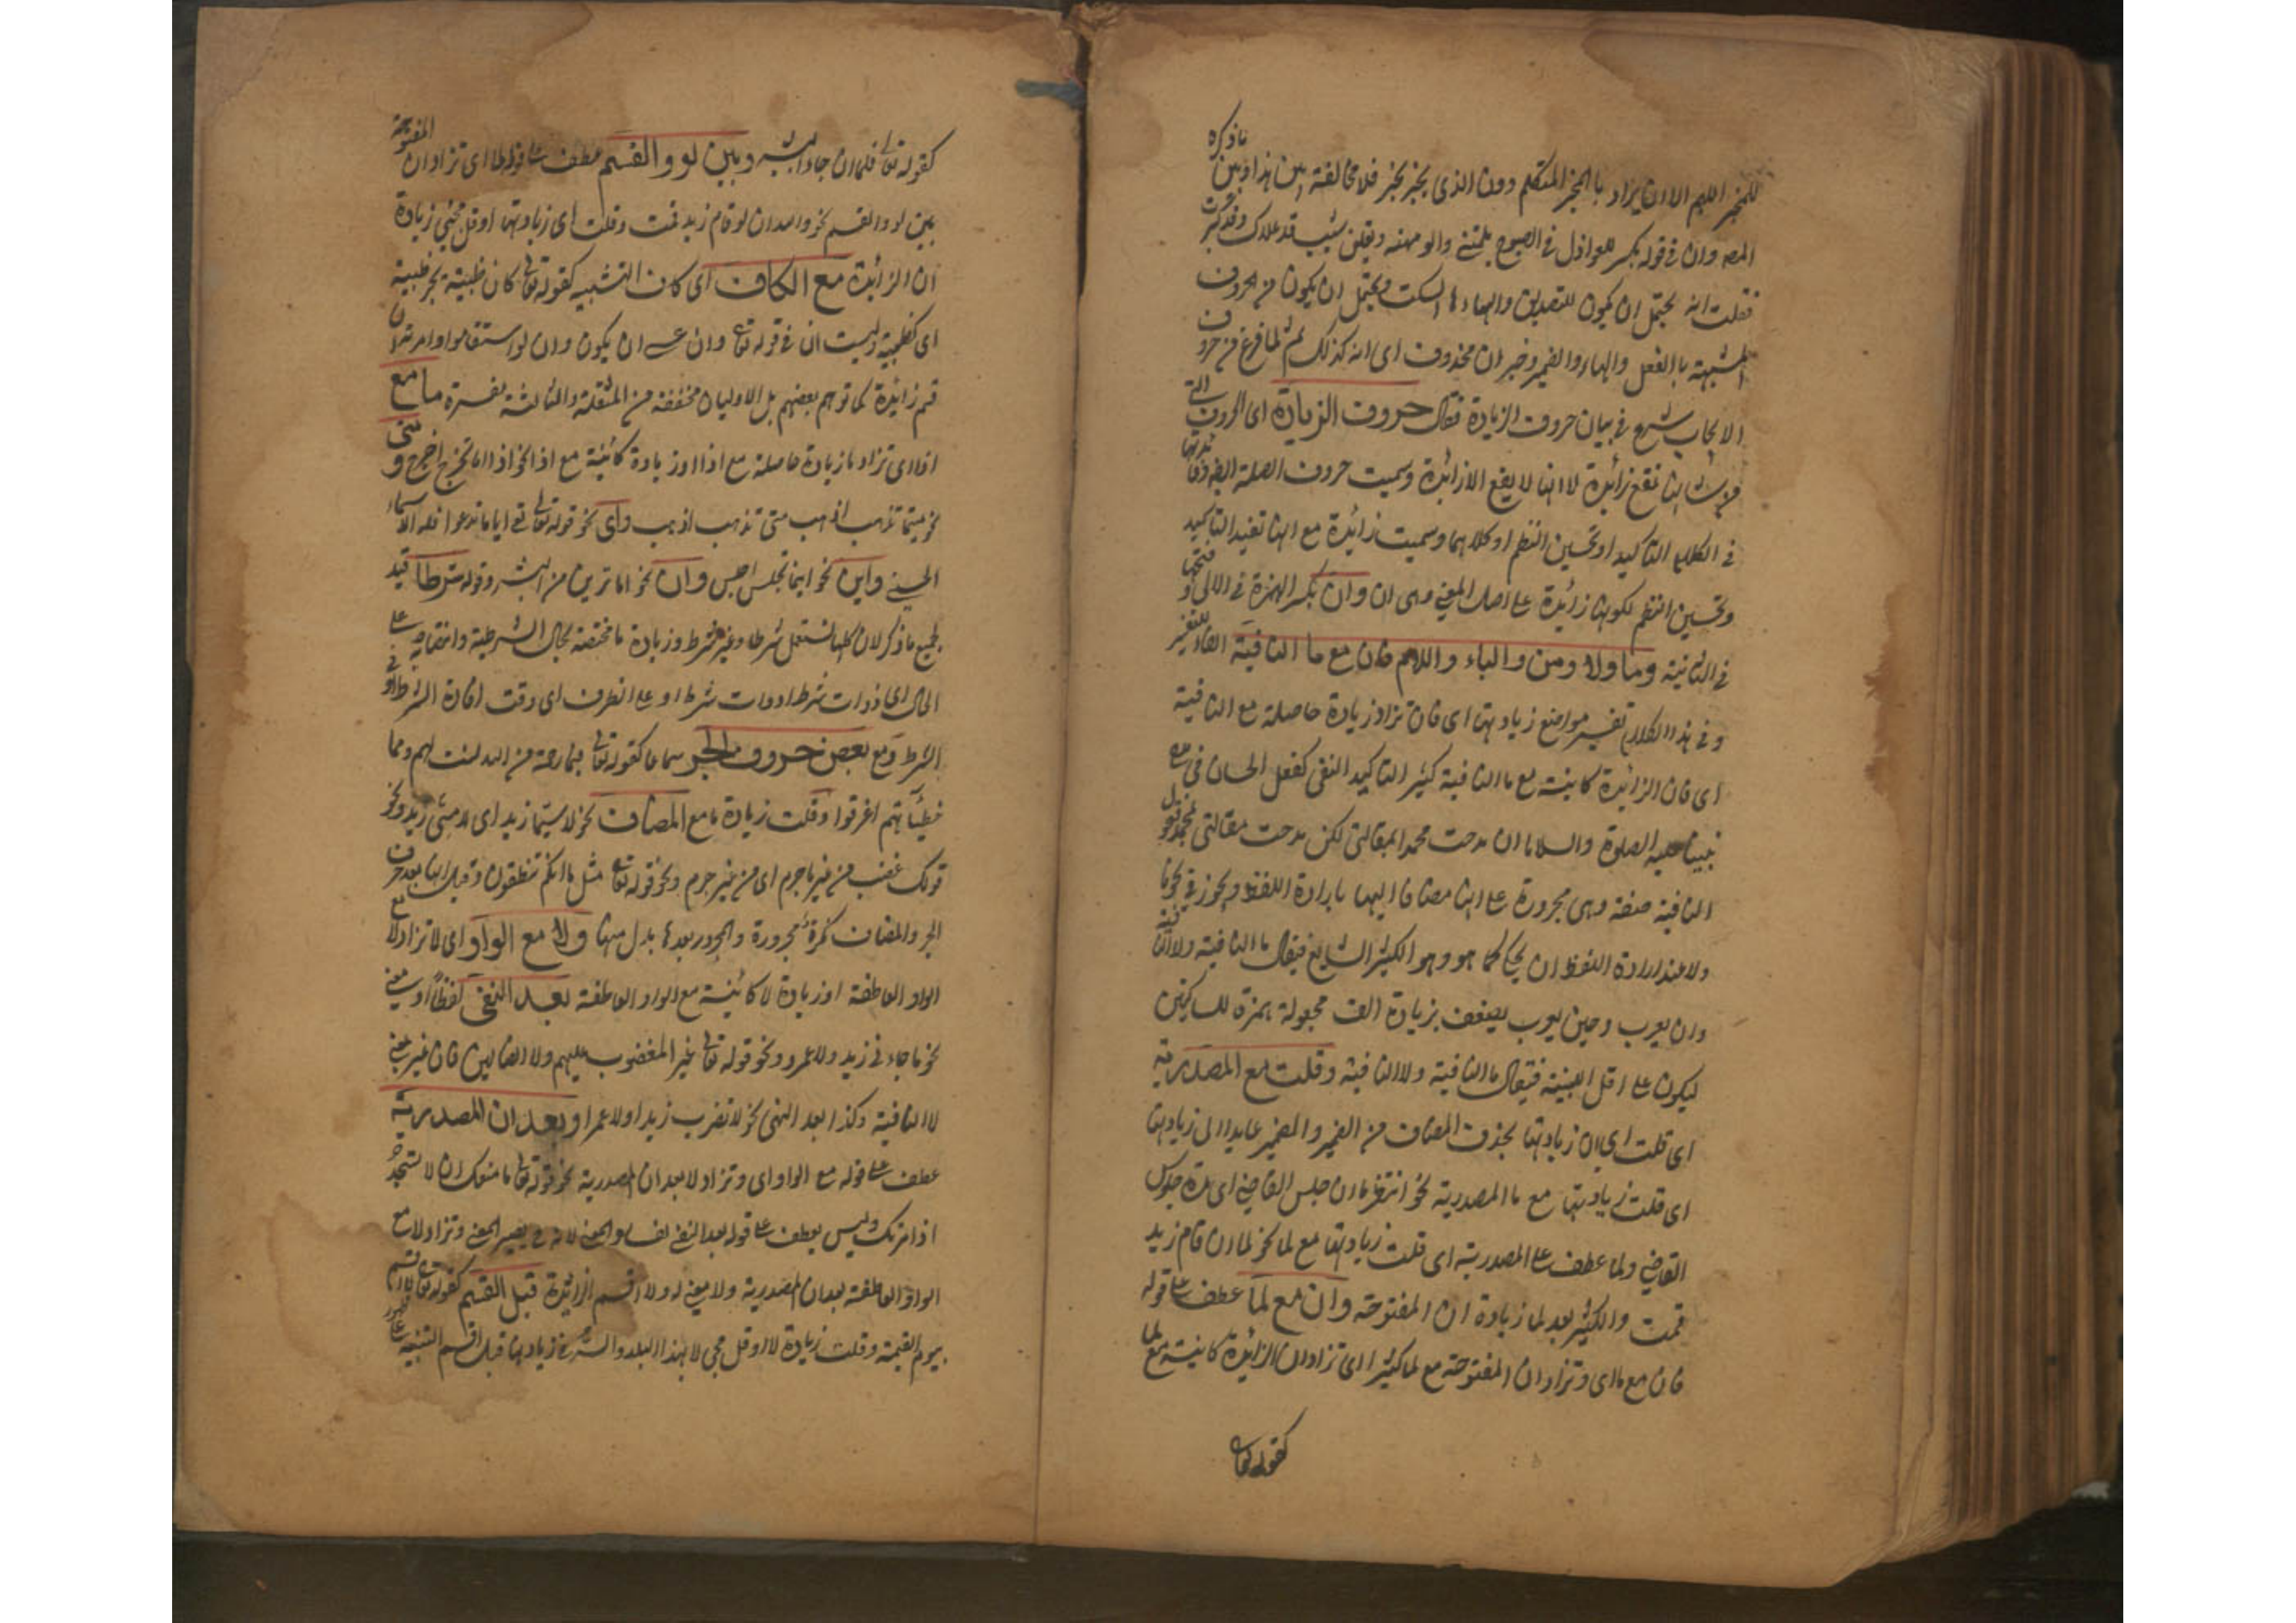 للمخبر اللهم الا ان يراد بالمخبر المتكلم دون الذى يخبر بخبر فلا مخالفة بين هذا وبين ما ذكره
المصه وان فى قوله بكر العواذل فى الصبوح يلمننى والومهنه ويقلن شيب قد علاك وقد كبرت
فقلت انه يحتمل ان يكون للتصديق والهاء ها السكت ويحتمل ان يكون من الحروف
المشبهة بالفعل والهاء والضمير وخبر ان محذوف اى انه كذلك ثم لما فرغ من حروف
الايجاب شرع فى بيان حروف الزيادة فقال حروف الزيادة اى الحروف التى
من شانها تقع زائدة لا انها لا يقع الا زائدة وسميت حروف الصلة ايضا
فى الكلام التاكيد او تحسين النظم او كلاهما وسميت زائدة مع انها تفيد التاكيد
وتحسين النظم لكونها زائدة على اصل المعنى وهى ان وان بكسر الهمزة فى الاولى وفتحها
فى الثانية وما ولا ومن والباء واللام فان مع ما النافية الفاء للتفسير
وفى هذا الكلام تفسير مواضع زيادتها اى فان تزاد زيادة حاصلة مع النافية
اى فان الزائدة كاينة مع ما النافية كثير التاكيد النفى كقول الحسان فى مدح
نبينا عليه الصلوة والسلام ما ان مدحت محمدا بمقالتى لكن مدحت مقالتى بمحمد وقوله
النافية صفة وهى مجرورة على انها مضاف اليها بارادة اللفظ ويجوز فى نحو ما
ولا عند ارادة اللفظ ان يحكى كما هو وهو الكثير الشايع فيقال ما النافية ولا النافية
وان يعرب وحين يعرب يضعف بزيادة الف مجهولة بهمزة للساكنين
ليكون على اقل ابنية فيقال ماء النافية ولاء النافية وقلت مع المصدرية
اى قلت اى ان زيادتها بحذف المضاف من الضمير والضمير عايد الى زيادتها
اى قلت زيادتها مع ما المصدرية نحو انتظر ما ان جلس القاضى اى مدة جلوس
القاضى ولما عطف على المصدرية اى قلت زيادتها مع لما نحو لما ان قام زيد
قمت والكثير بعد لما زيادة ان المفتوحة وان مع لما عطف على قوله
فان مع ما اى وتزاد ان المفتوحة مع لما كثيرا اى تزاد ان الزائدة كاينة مع لما
كقوله تعالى
كقوله تعالى فلما ان جاء البشير وبين لو والقسم عطف على قوله لما اى تزاد ان المفتوحة
بين لو والقسم نحو والله ان لو قام زيد قمت وقلت اى زيادتها او قل مجىء زيادة
ان الزائدة مع الكاف اى كاف التشبيه كقوله تعالى كان ظبية بجر ظبية
اى كظبية وليست ان فى قوله تعالى وان عسى ان يكون وان لو استقاموا وامرته ان
قم زائدة كما توهم بعضهم بل الاوليان مخففة من المثقلة والثالثة مفسرة ما مع
اذا اى تزاد ما زيادة حاصلة مع اذا او زيادة كائنة مع اذا نحو اذا ما تخرج اخرج ومتى
نحو متى ما تذهب اذهب متى تذهب اذهب واى نحو قوله تعالى ايا ما تدعوا فله الاسماء
الحسنى واين نحو اينما تجلس اجلس وان نحو اما ترين من البشر وقوله شرطا قيد
لجميع ما ذكر لان كلها تستعمل شرطا وغير شرط وزيادة ما مختصة بحال الشرطية وانتصابه على
الحال اى ذوات شرط ادوات شرط او على الظرف اى وقت افادة الشرط او فى
الشرط ومع بعض حروف الجر سماعا كقوله تعالى فبما رحمة من الله لنت لهم ومما
خطيئاتهم اغرقوا وقلت زيادة ما مع المضاف نحو لا سيما زيد اى لا مثل زيد ونحو
قولك غضب من غير ما جرم اى من غير جرم ونحو قوله تعالى مثل ما انكم تنطقون وقيل انها بعد حرف
الجر والمضاف نكرة مجرورة والمجرور بعدها بدل منها ولا مع الواو اى لا تزاد لا مع
الواو العاطفة او زيادة لا كائنة مع الواو العاطفة بعد النفى لفظا او معنى
نحو ما جاءنى زيد ولا عمرو ونحو قوله تعالى غير المغضوب عليهم ولا الضالين فان غير بمعنى
لا النافية وكذا بعد النهى نحو لا تضرب زيدا ولا عمرا وبعد ان المصدرية
عطف على قوله مع الواو اى وتزاد لا بعد ان المصدرية نحو قوله تعالى ما منعك ان لا تسجد
اذ امرتك وليس بعطف على قوله بعد النفى لفساد المعنى لانه يصير المعنى وتزاد لا مع
الواو العاطفة بعد ان المصدرية ولا معنى له ولا اقسم الزائدة قبل القسم كقوله تعالى لا اقسم
بيوم القيمة وقلت زيادة لا او قل مجى لا بهذا البلد والسر فى زيادتها قبل اقسم التنبيه على